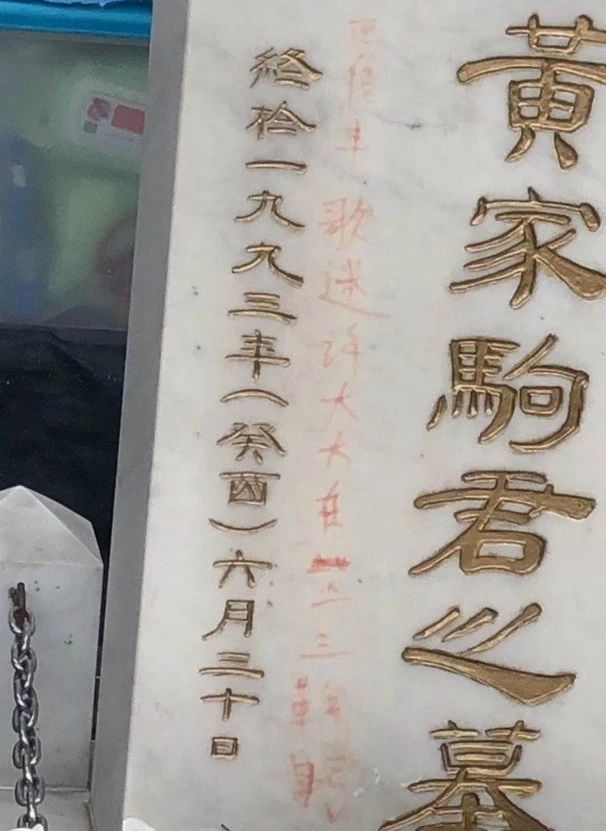 黃家駒君之墓
歌迷許大大在三鞠躬
終於一九九三年(癸酉)六月三十日